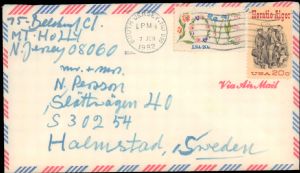 75-Belshaw Ct.
MT-Holly
N. Jersey 08060
PM
7 JUN
1982
USA 20c
Horatio Alger
USA 20c
Via Air Mail
mr. + mrs.
N. Persson
Slättvägen 40
S 302 54
Halmstad, Sweden